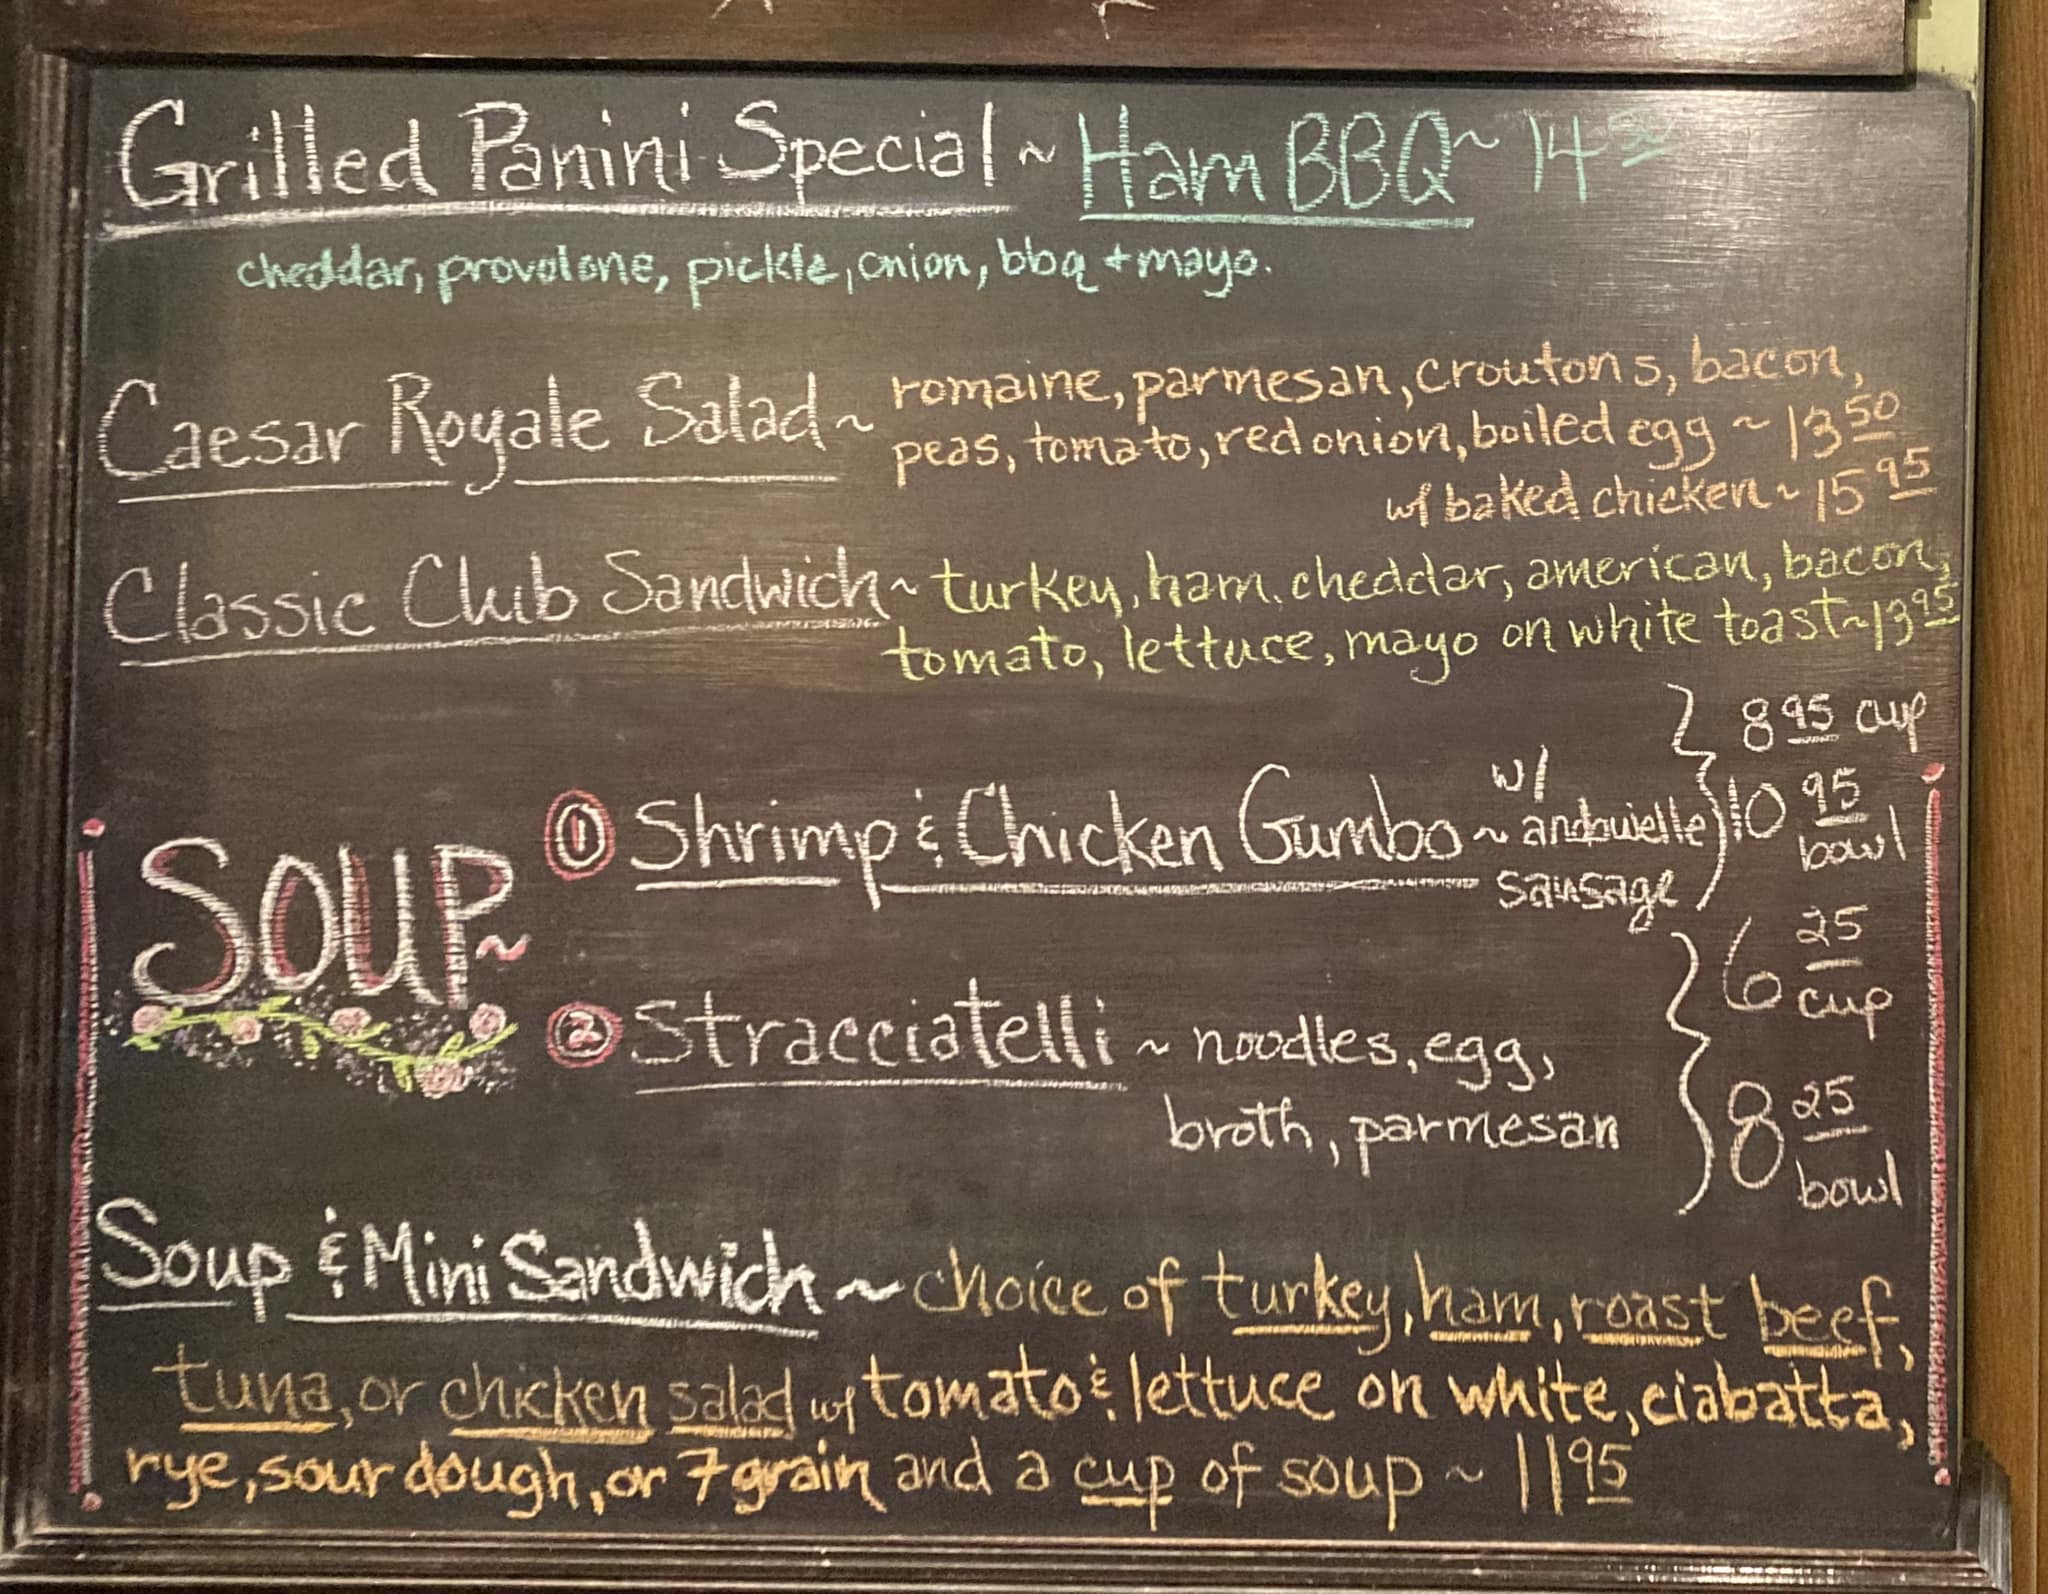 Grilled Panini Special ~ Ham BBQ ~ 14 50
cheddar, provolone, pickle, onion, bbq + mayo.
Caesar Royale Salad ~ romaine, parmesan, croutons, bacon,
peas, tomato, red onion, boiled egg ~ 13 50
w/ baked chicken ~ 15 95
Classic Club Sandwich ~ turkey, ham, cheddar, american, bacon,
tomato, lettuce, mayo on white toast ~ 13 95
SOUP ~
① Shrimp & Chicken Gumbo ~ w/ andouielle sausage
8 95 cup
10 95 bowl
② Stracciatelli ~ noodles, egg,
broth, parmesan
6 25 cup
8 25 bowl
Soup & Mini Sandwich ~ choice of turkey, ham, roast beef,
tuna, or chicken salad w/ tomato & lettuce on white, ciabatta,
rye, sour dough, or 7 grain and a cup of soup ~ 11 95